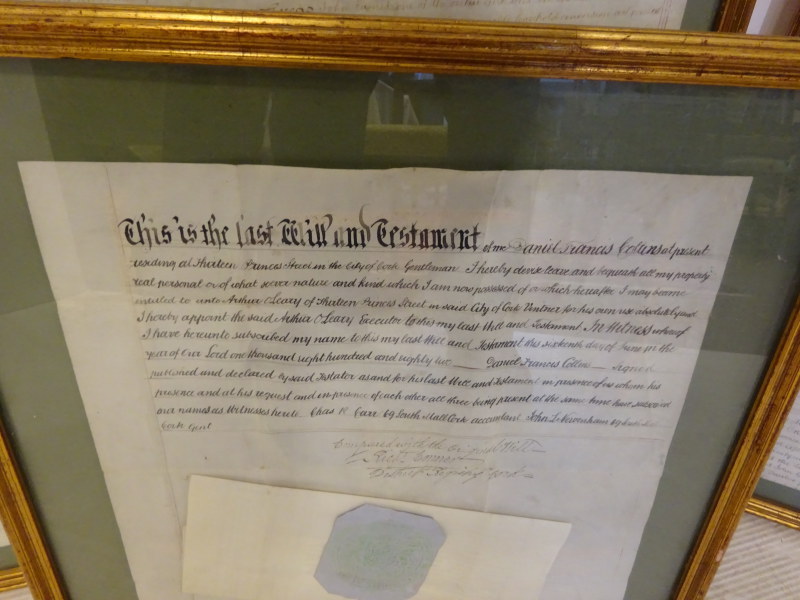 This is the last Will and Testament of me Daniel Francis Collins at present
residing at Thirteen Princes Street in the City of Cork Gentleman I hereby devise leave and bequeath all my property
real personal or of what soever nature and kind which I am now possessed of or which hereafter I may become
entitled to unto Arthur O'Leary of Thirteen Princes Street in said City of Cork Vintner for his own use absolutely and
I hereby appoint the said Arthur O'Leary Executor to this my last Will and Testament In Witness whereof
I have hereunto subscribed my name to this my last Will and Testament this sixteenth day of June in the
year of Our Lord one thousand eight hundred and eighty two Daniel Francis Collins signed
published and declared by said Testator as and for his last Will and Testament in presence of us whom his
presence and at his request and in presence of each other all three being present at the same time have
our names as Witnesses hereto Chas R Carr 69 South Mall Cork accountant John
Cork Gent
Compared with the original Will
District Registrar Cork